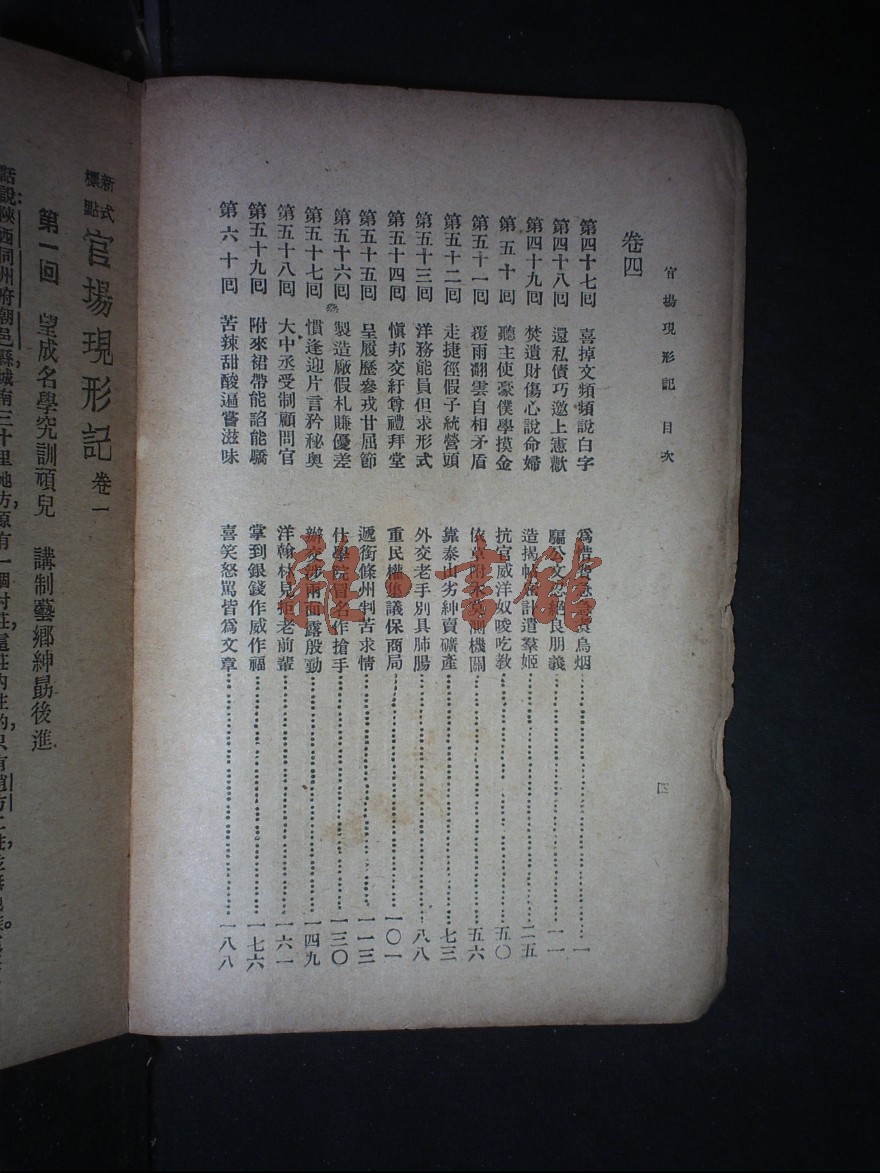 官場現形記 目次
卷四
第四十七回 喜掉文頻頻說白字 爲惜費急急煑烏烟 一
第四十八回 還私債巧邀上憲歡 騙公文忍絕良朋義 一一
第四十九回 焚遺財傷心說命婦 造揭帖密計遣羣姬 二五
第五十回 聽主使豪僕學摸金 抗官威洋奴唆吃教 五〇
第五十一回 覆雨翻雲自相矛盾 依草附木莫測機關 五六
第五十二回 走捷徑假子統營頭 靠泰山劣紳賣礦產 七三
第五十三回 洋務能員但求形式 外交老手別具肺腸 八八
第五十四回 愼邦交紆尊禮拜堂 重民權集議保商局 一〇一
第五十五回 呈履歷參戎甘屈節 遞銜條州判苦求情 一一三
第五十六回 製造廠假札賺優差 仕學院冒名作搶手 一三〇
第五十七回 慣逢迎片言矜秘奥 辦交涉兩面露殷勤 一四九
第五十八回 大中丞受制顧問官 洋翰林見拒老前輩 一六一
第五十九回 附來裙帶能諂能驕 掌到銀錢作威作福 一七六
第六十回 苦辣甜酸遍嘗滋味 喜笑怒罵皆爲文章 一八八
四
新式標點 官場現形記 卷一
第一回 望成名學究訓頑兒 講制藝鄉紳勗後進
話說：陝西同州府朝邑縣，城南三十里地方，原有一個村莊，這莊內住的，只有趙方二姓，並無他族。
龍·書館